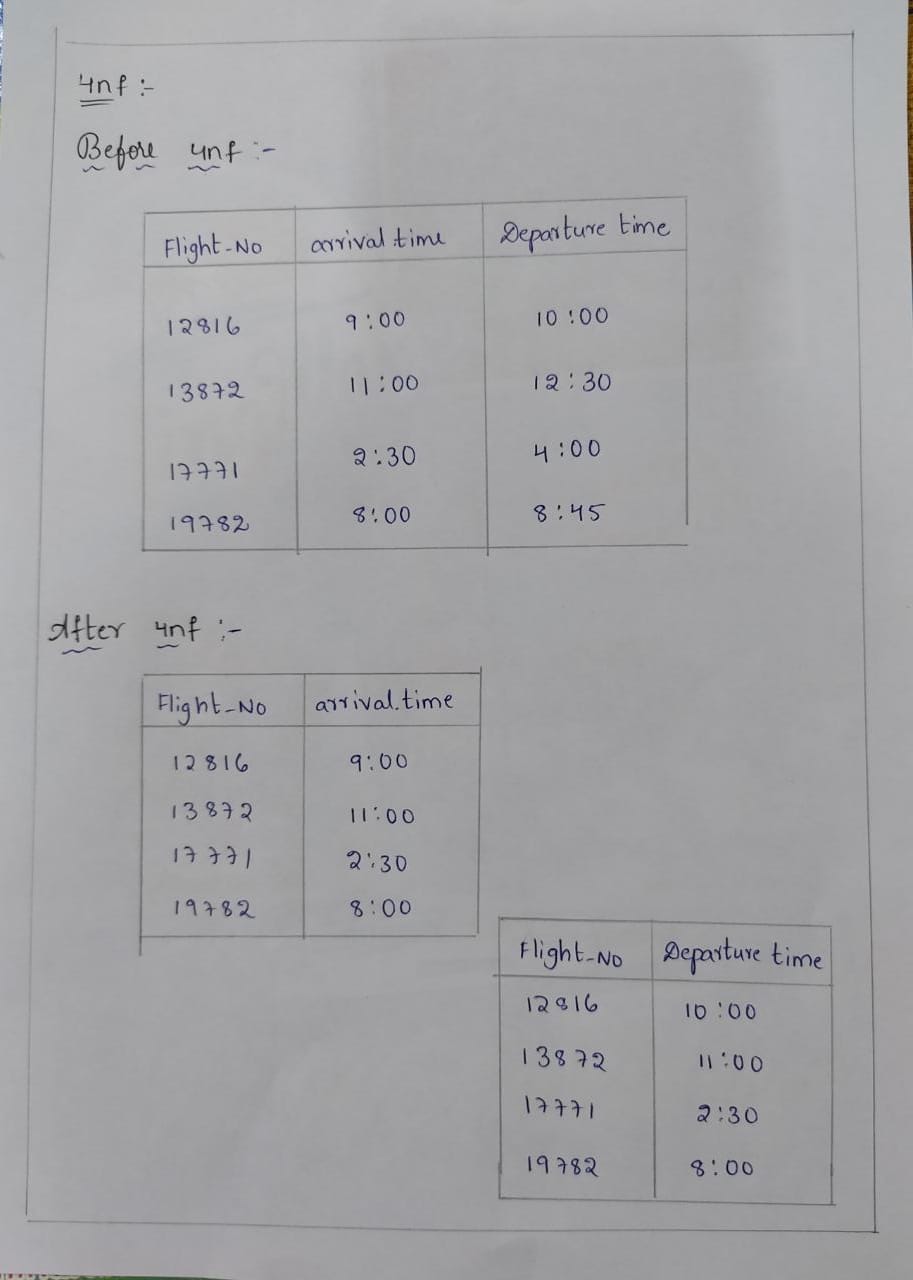 4nf :-
Before 4nf :-
Flight-No arrival time Departure time
12816 9:00 10:00
13872 11:00 12:30
17771 2:30 4:00
19782 8:00 8:45
After 4nf :-
Flight-No arrival.time
12816 9:00
13872 11:00
17771 2:30
19782 8:00
Flight-No Departure time
12816 10:00
13872 11:00
17771 2:30
19782 8:00